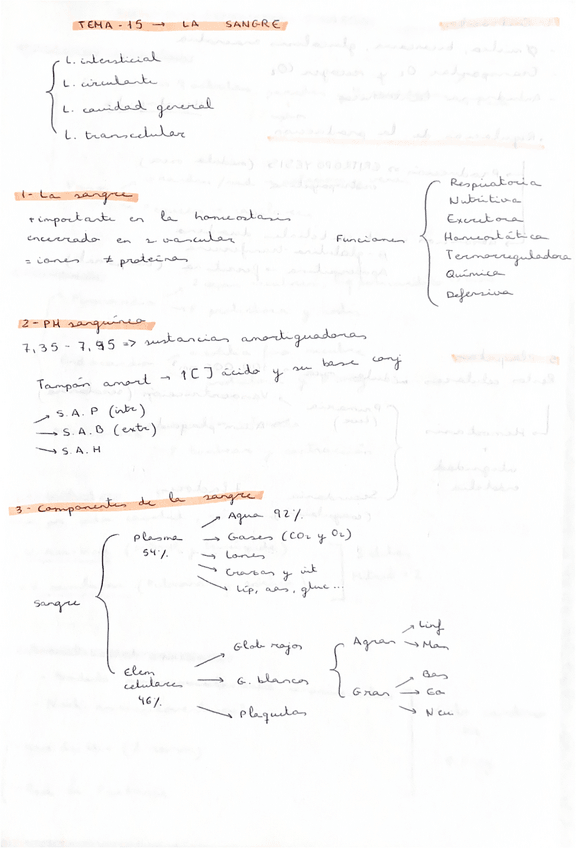 TEMA-15 → LA SANGRE
L. intersticial
L. circulante
L. cavidad general
L. transcelular
1- La sangre
+ importante en la homeostasis
encerrado en s vascular
= iones ≠ proteinas
Funciones
Respiratoria
Nutritiva
Excretora
Homeostática
Termorreguladora
Química
Defensiva
2- PH sanguíneo
7,35 - 7,95 => sustancias amortiguadoras
Tampón amort → ↑[ ] ácido y su base conj
→ S.A.P (intr)
→ S.A.B (extr)
→ S.A.H
3- Componentes de la sangre
sangre
Plasma
54%
→ Agua 92%
→ Gases (CO2 y O2)
→ Iones
→ Grasas y vit
→ Líp, aas, gluc...
Elem
celulares
46%
→ Glob rojos
→ G. blancos
→ Plaquetas
Agran
→ Linf
→ Mon
Gran
→ Bas
→ Eo
→ Neu